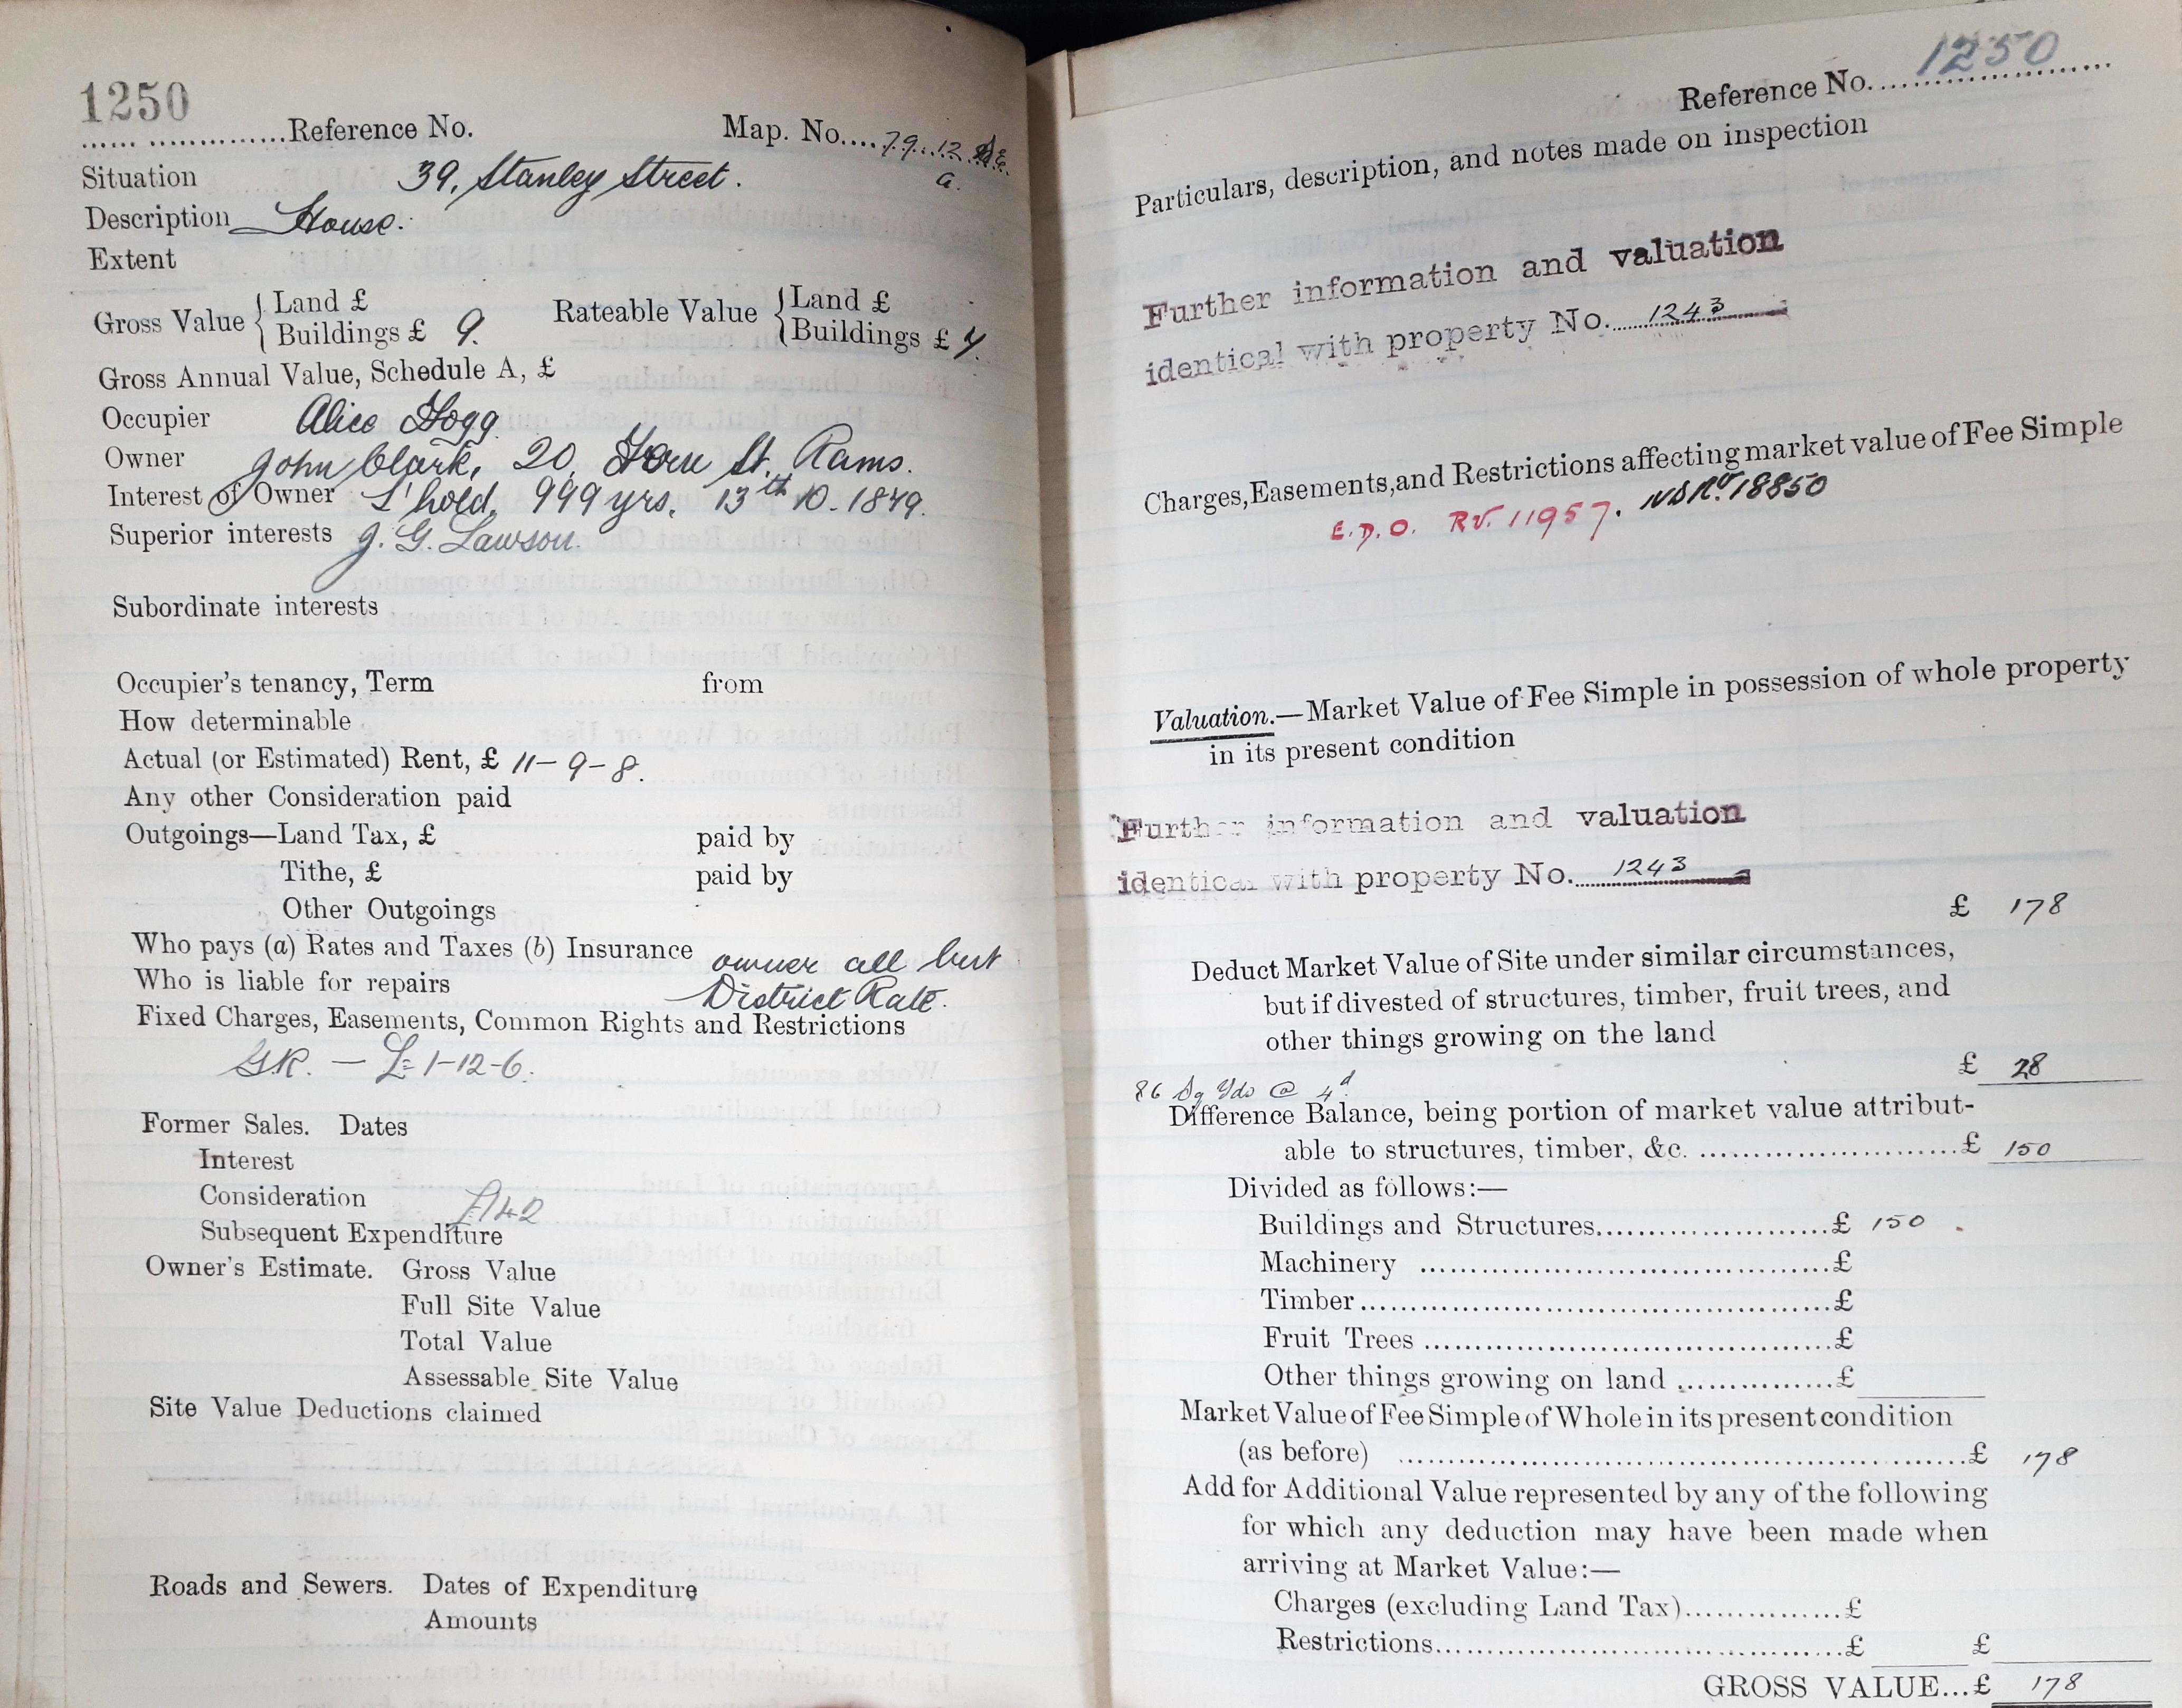 1250
...... ..............Reference No. Map. No....79.12
a.
Situation 39, Stanley Street.
Description House.
Extent
Gross Value { Land £
Buildings £ 9. Rateable Value { Land £
Buildings £ 7.
Gross Annual Value, Schedule A, £
Occupier Alice Hogg
Owner John Clark, 20, St. Rams.
Interest of Owner L'hold, 999 yrs. 13th 10. 1849.
Superior interests J. G. Lawson.
Subordinate interests
Occupier's tenancy, Term from
How determinable
Actual (or Estimated) Rent, £ 11-9-8.
Any other Consideration paid
Outgoings—Land Tax, £ paid by
Tithe, £ paid by
Other Outgoings
Who pays (a) Rates and Taxes (b) Insurance owner all but
Who is liable for repairs District Rate.
Fixed Charges, Easements, Common Rights and Restrictions
G.R. — £1-12-6.
Former Sales. Dates
Interest
Consideration £142
Subsequent Expenditure
Owner's Estimate. Gross Value
Full Site Value
Total Value
Assessable Site Value
Site Value Deductions claimed
Roads and Sewers. Dates of Expenditure
Amounts
Reference No. 1250
Particulars, description, and notes made on inspection
Further information and valuation
identical with property No. 1243
Charges, Easements, and Restrictions affecting market value of Fee Simple
E.D.O. RV. 11957. NDRV 18850
Valuation.—Market Value of Fee Simple in possession of whole property
in its present condition
Further information and valuation
identical with property No. 1243
£ 178
Deduct Market Value of Site under similar circumstances,
but if divested of structures, timber, fruit trees, and
other things growing on the land
£ 28
86 Sq Yds @ 4d
Difference Balance, being portion of market value attribut-
able to structures, timber, &c. ........................£ 150
Divided as follows:—
Buildings and Structures......................£ 150
Machinery ......................................£
Timber............................................£
Fruit Trees ......................................£
Other things growing on land ...............£
Market Value of Fee Simple of Whole in its present condition
(as before) ......................................................£ 178
Add for Additional Value represented by any of the following
for which any deduction may have been made when
arriving at Market Value:—
Charges (excluding Land Tax)...............£
Restrictions.........................................£ £
GROSS VALUE...£ 178